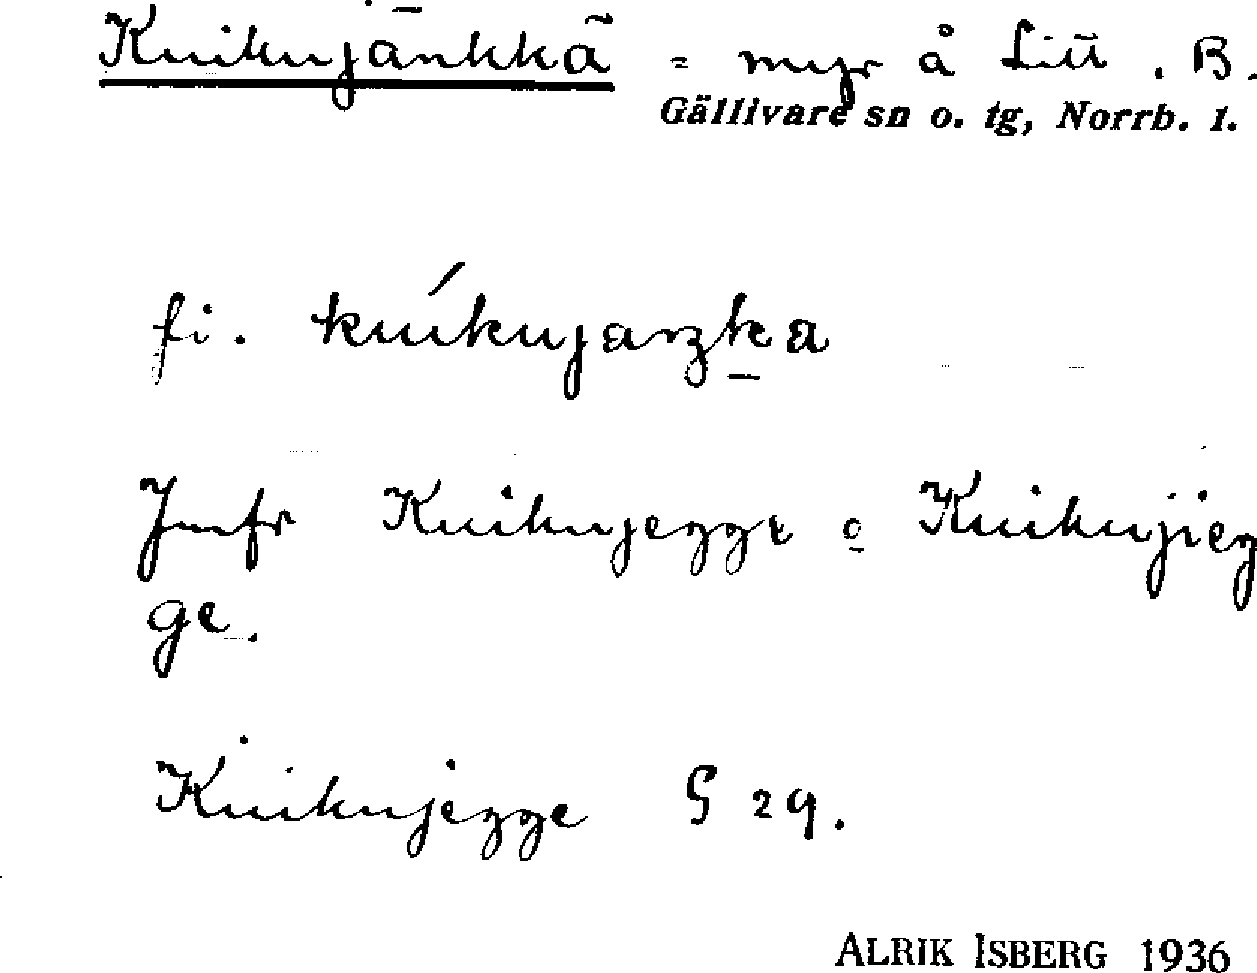 Kuikujänkkä = myr å Litt. B.
Gällivare sn o. tg, Norrb. l.
fi. kuíkujaŋka
Jmfr Kuikujegge o Kuikujieg
ge.
Kuikujegge § 29.
ALRIK ISBERG 1936